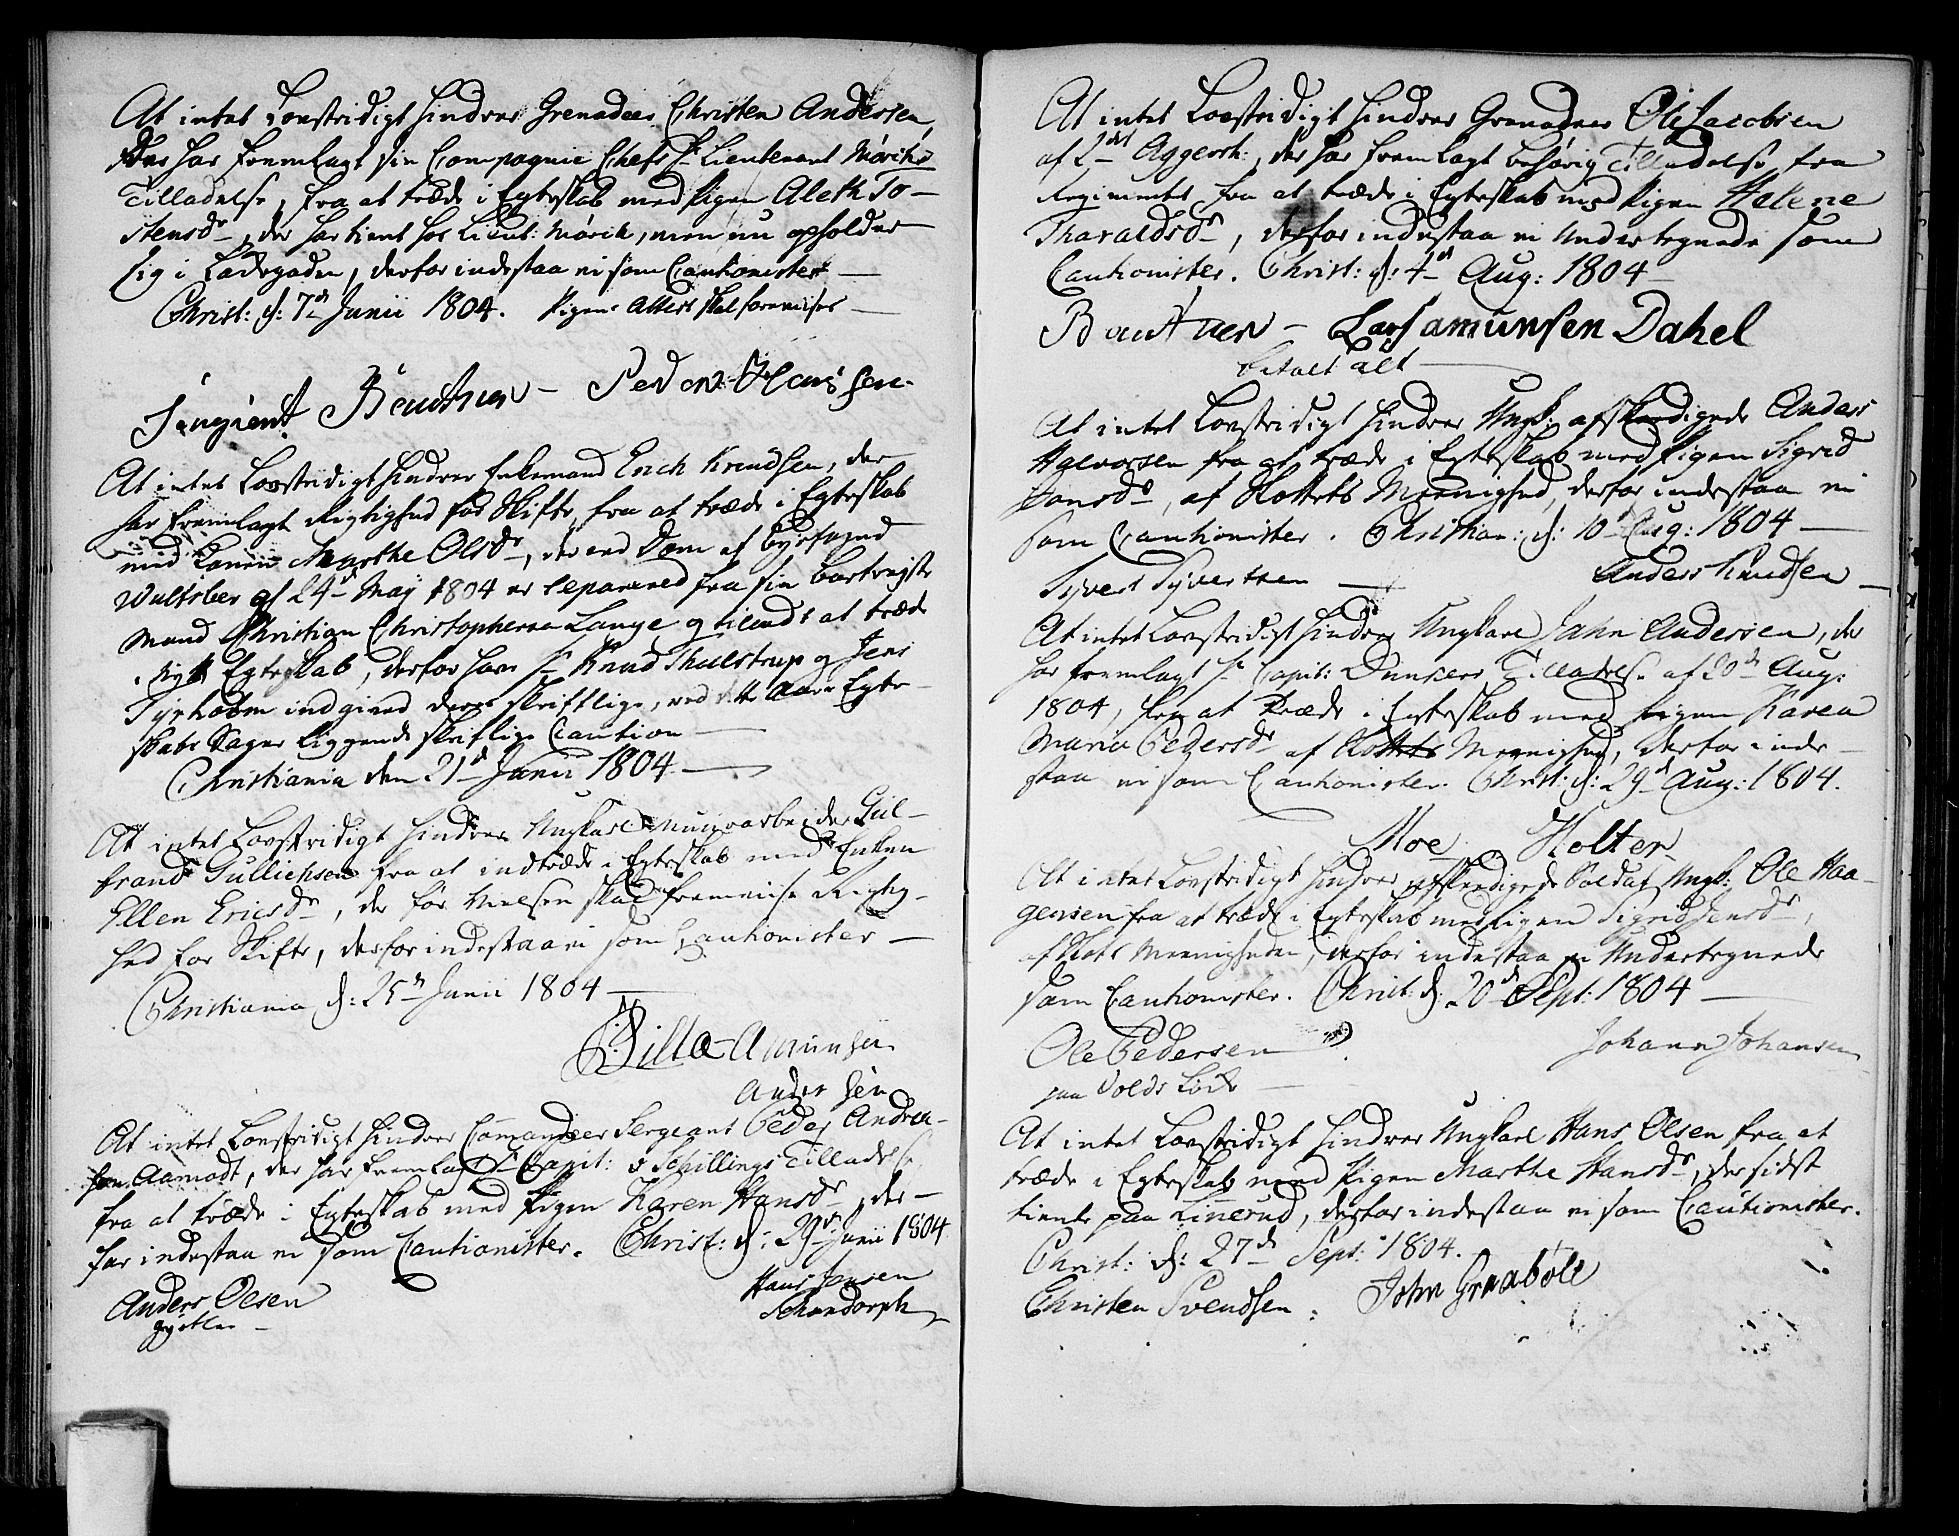 At intet Lovstridigt hindrer Grenadeer Christen Andersen,
der har fremlagt sin Compagnie Chefs Hr Lieutenant Møriks
Tilladelse, fra at træde i Egteskab med Pigen Aleth To-
stensdr, der har tient hos Lieut: Mørik, men nu opholder
sig i Ladegaden, derfor indestaa vi som Cautionister
Christ: d: 7de Junii 1804. Pigens Attest skal forevises
Sergient Beuthner - Peder Hanssen.
At intet Lovstridigt hindrer Enkemand Erich Knudsen, der
har fremlagt Rigtighed for Skifte, fra at træde i Egteskab
med Konen Marthe Olsdr, der ved Dom af Byefogud
Wulfsber af 24de May 1804 er separered fra sin bortrejste
Mand Christian Christophersen Lange og tilladt at træde
i Nyt Egteskab, derfor har Hr Knud Thulstrup og Jens
Tyrholm indgived deres skriftlige, ved dette Aars Egte-
skabs Sager liggende skriftlige Caution
Christiania den 21de Junii 1804.
At intet Lovstridigt hindrer Unglkarl Muurarbeider Gul-
brand Gullichsen fra at indtræde i Egteskab med Enken
Ellen Ericsdr, der før Vielsen skal fremvise Rigtig-
hed for Skifte, derfor indestaa vi som Cautionister
Christiania d: 25de Junii 1804
Amunsen
Andersen
At intet Lovstridigt hindrer Comandeer Sergeant Peder Andrea-
sen Aamodt, der har fremlagt Hr Capit: v Schillings Tilladelse
fra at træde i Egteskab med Pigen Karen Hansdr, der-
for indestaa vi som Cautionister. Christ: d: 29de Junii 1804
Anders Olsen Hans Jensen
Schandorph
At intet Lovstridigt hindrer Grenadeer Ole Jacobsen
af 2det Aggersh:, der har fremlagt behørig Tilladelse fra
Regimentet, fra at træde i Egteskab med Pigen Helene
Tharaldsdr, derfor indestaa vi Undertegnede som
Cautionister. Christ: d: 4de Aug: 1804
Beuthner - Lars Amunsen Dahel
betalt alt
At intet Lovstridigt hindrer Ungk: afskedigede Anders
Halvorsen fra at træde i Egteskab med Pigen Sigrid
Hansdr, af Slottets Meenighed, derfor indestaa vi
som Cautionister. Christian: d: 10de Aug: 1804
Syvert Syvertsen Anders Knudsen
At intet Lovstridigt hindrer Ungkarl Jahn Andersen, der
har fremlagt Hr Capit: Dunkers Tilladelse af 20de Aug:
1804, fra at Træde i Egteskab med Pigen Karen
Maria Pedersdr af Slottets Meenighed, derfor inde-
staa vi som Cautionister. Christ: d: 29de Aug: 1804.
Moe Holter
At intet Lovstridigt hindrer afskedigede Soldat Ungk: Ole Haa-
gensen fra at træde i Egteskab med Pigen Sigrid Jensdr,
af Slots Meenigheden, derfor indestaa vi Undertegnede
som Cautionister. Christ: d: 20de Sept: 1804
Ole Pedersen Johann Johansen
paa Volds Løkke
At intet Lovstridigt hindrer Ungkarl Hans Olsen fra at
træde i Egteskab med Pigen Marthe Hansdr, der sidst
tiente paa Linerud, derfor indestaa vi som Cautionister.
Christ: d: 27de Sept: 1804.
Christen Svendsen. John Graabøle